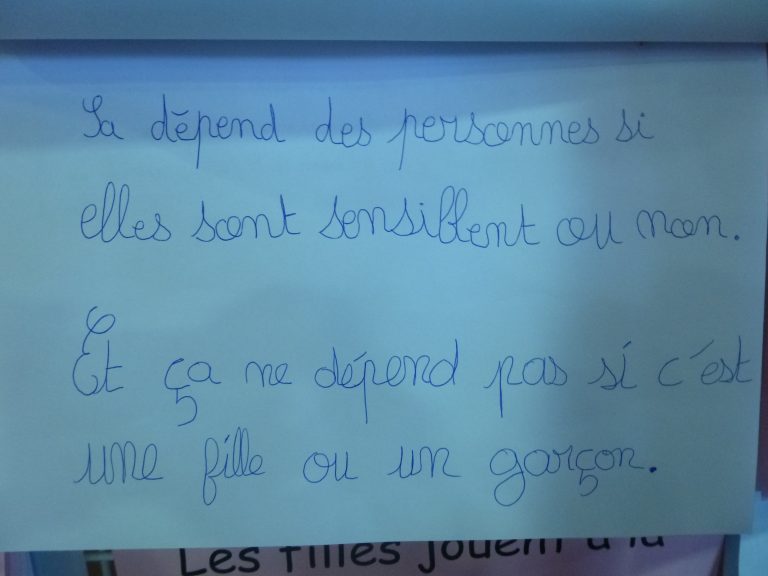 Sa dépend des personnes si
elles sont sensiblent ou non.
Et ça ne dépend pas si c'est
une fille ou un garçon.
Les filles jouent à la